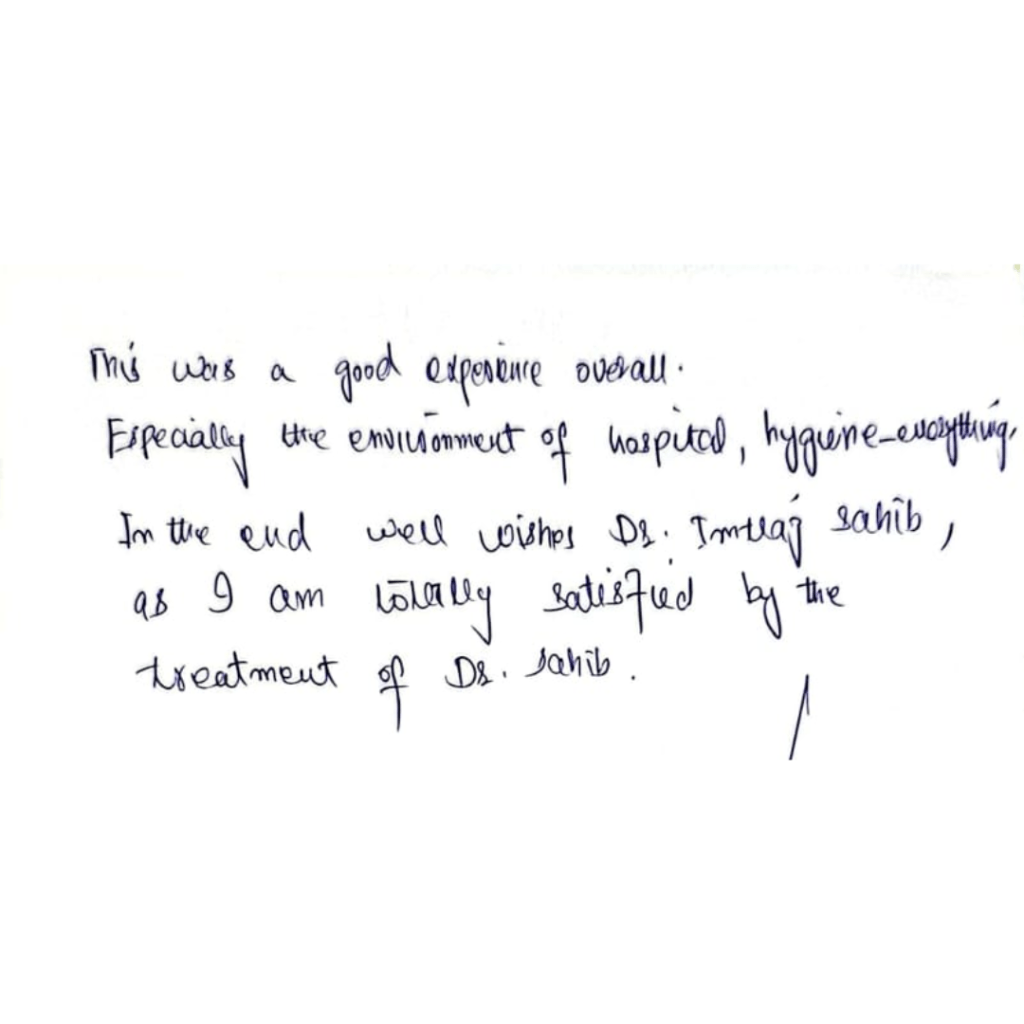 This was a good experience overall.
Especially the environment of hospital, hygiene-everything.
In the end well wishes Dr. Imtiaj sahib,
as I am totally satisfied by the
treatment of Dr. sahib.